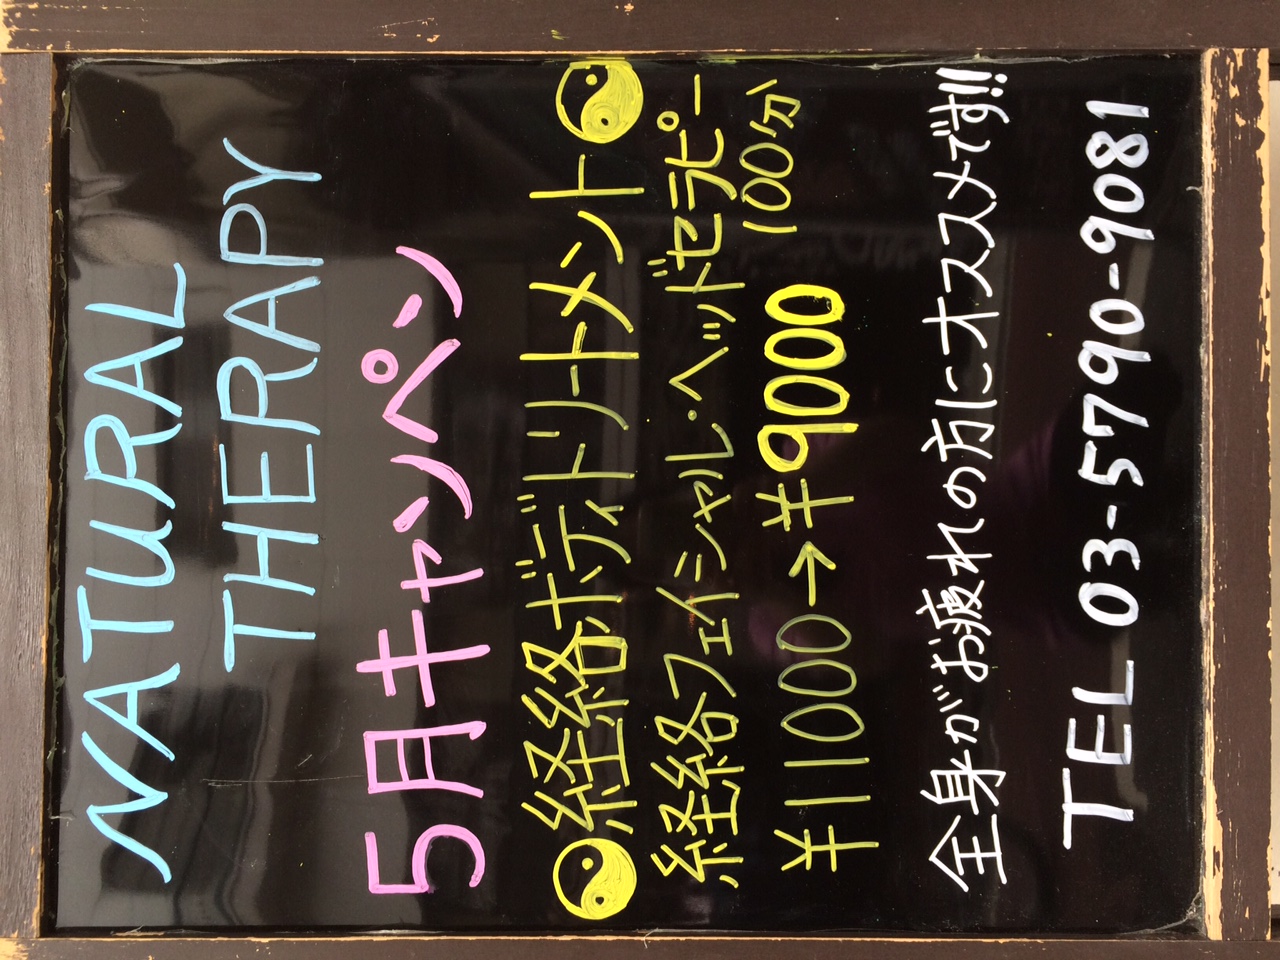 NATURAL
THERAPY
5月キャンペン
経絡ボディトリートメント
経絡フェイシャル・ヘッドセラピー
¥11000→¥9000 100分
全身がお疲れの方にオススメです!!
TEL 03-5790-9081